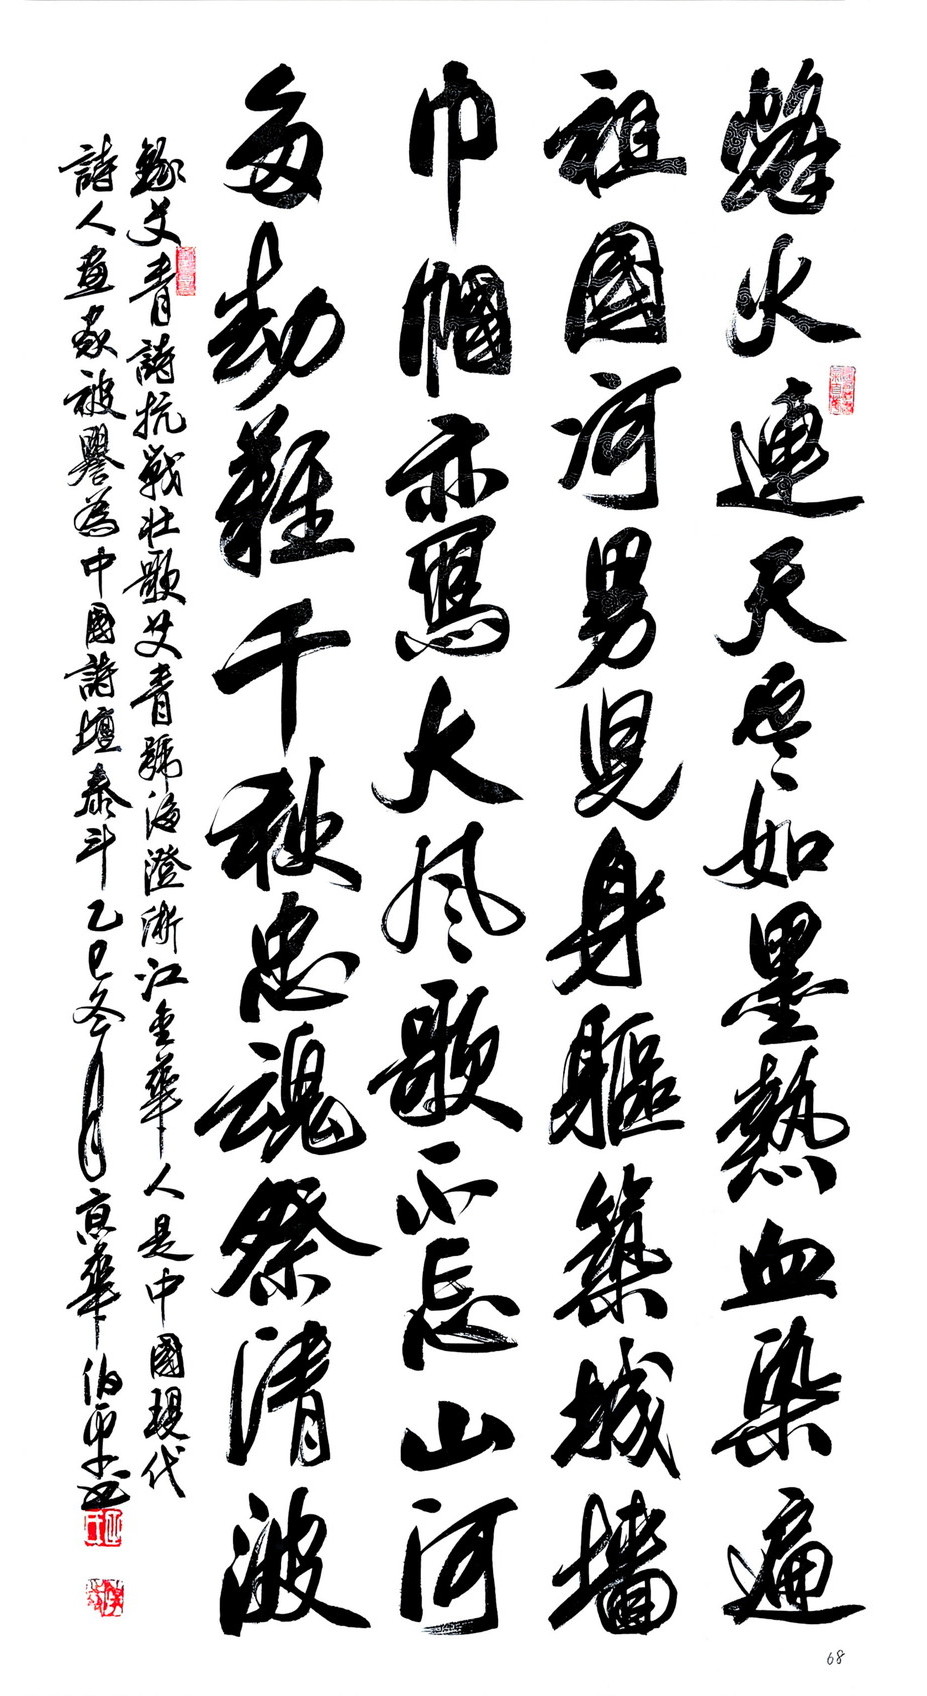 烽火連天雲如墨熱血染遍
祖國河男兒身軀築城墻
巾幗亦寫大風歌不忘山河
多劫難千秋忠魂祭清波
錄艾青詩抗戰壯歌艾青號海澄浙江金華人是中國現代
詩人畫家被譽為中國詩壇泰斗乙巳冬月京華伯平書
68